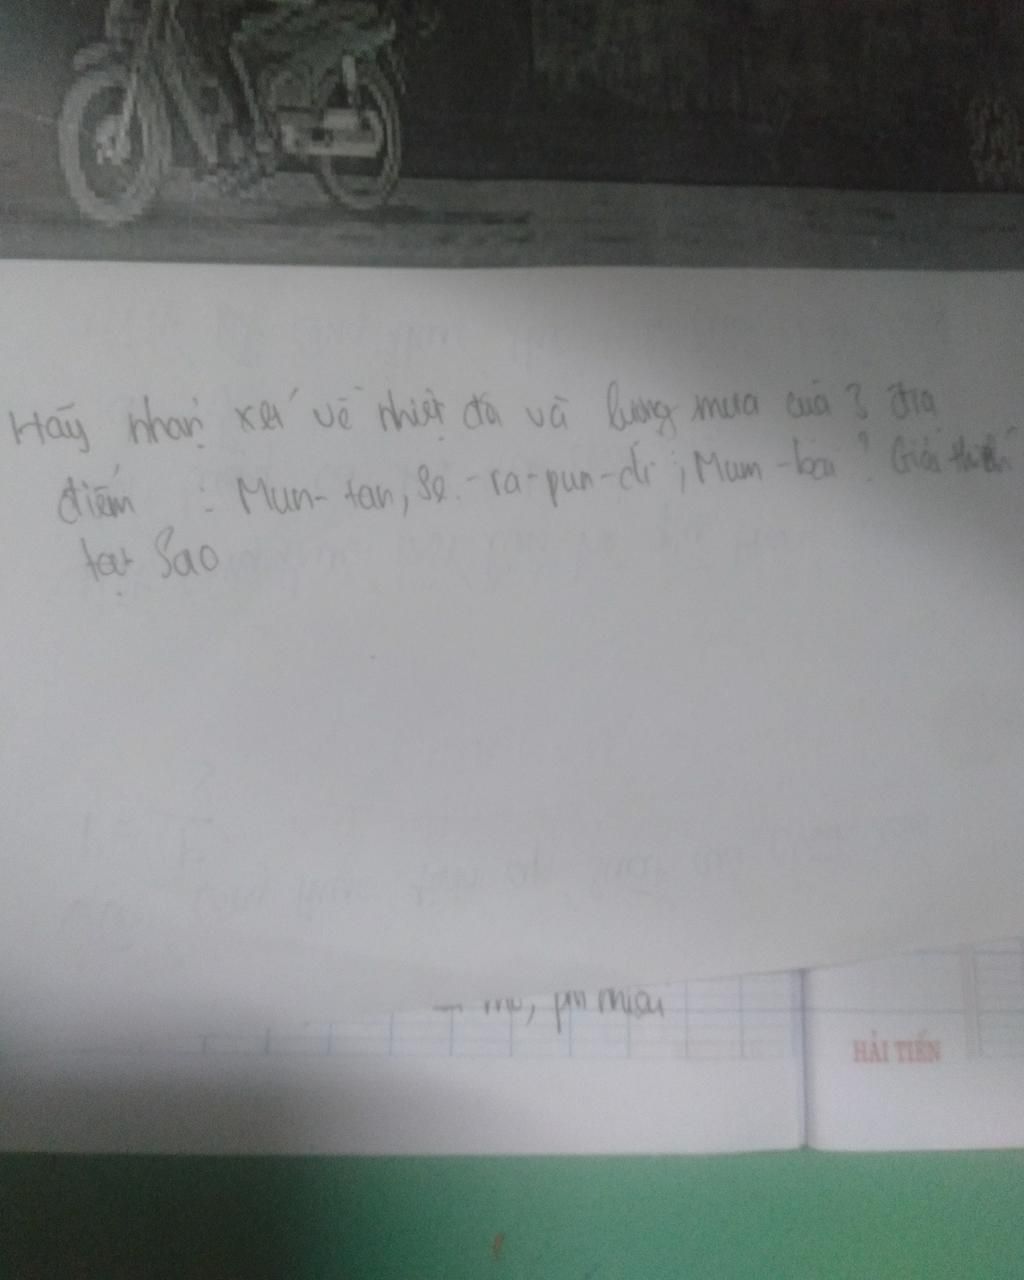 Hãy nhận xét về nhiệt độ và lượng mưa của 3 địa
điểm : Mun-tan, Se-ra-pun-di; Mum-bai? Giải thích
tại sao
HẢI TIẾN